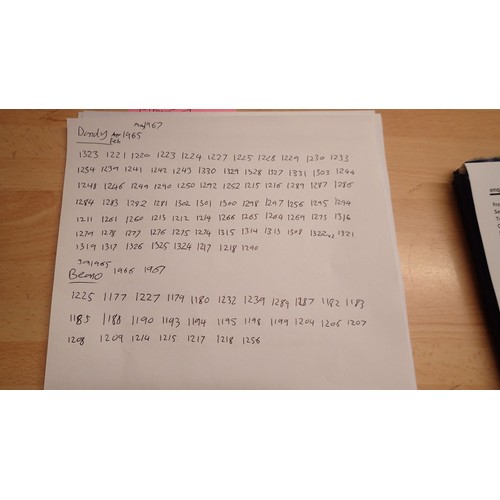 may1967
Dandy Apr 1965
Feb
1323 1221 1220 1223 1224 1227 1225 1228 1229 1230 1233
1234 1239 1241 1242 1243 1330 1329 1328 1327 1331 1303 1244
1248 1246 1249 1290 1250 1292 1252 1215 1216 1289 1287 1286
1284 1283 1282 1281 1302 1301 1300 1298 1297 1256 1295 1294
1211 1261 1260 1213 1212 1214 1266 1265 1264 1269 1273 1316
1279 1278 1277 1276 1275 1274 1315 1314 1313 1308 1322 x2 1321
1319 1317 1326 1325 1324 1217 1218 1290
Jan1965
Beano 1966 1967
1225 1177 1227 1179 1180 1232 1239 1284 1287 1182 1183
1185 1188 1190 1193 1194 1195 1198 1199 1204 1206 1207
1208 1209 1214 1215 1217 1218 1256